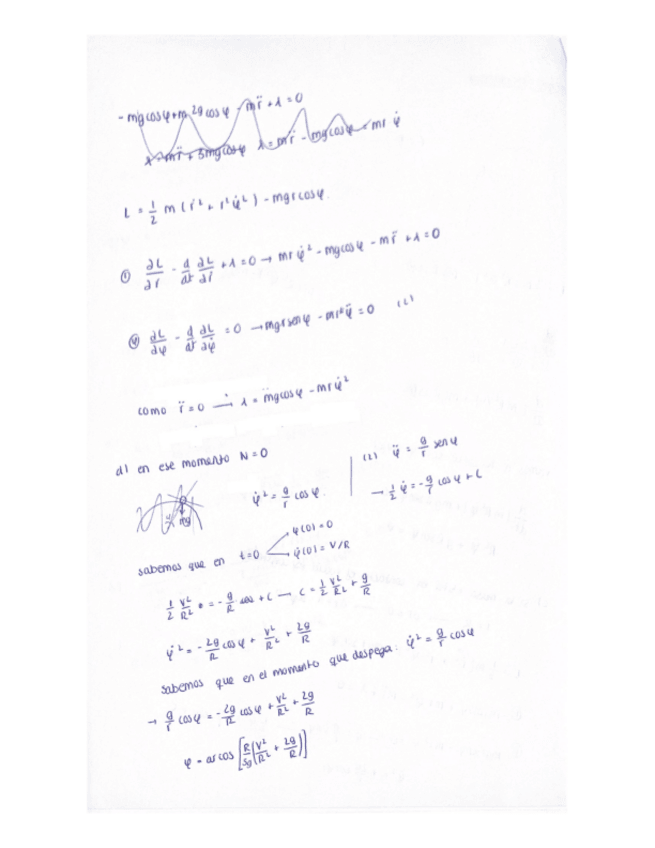 - mg cos φ + m 2g cos φ - m r̈ + λ = 0
λ - m r̈ + 3mg cos φ λ = m r̈ - mg cos φ = m r φ̇
L = 1/2 m ( ṙ² + r² φ̇² ) - mgr cos φ.
① ∂L/∂r - d/dt ∂L/∂ṙ + λ = 0 → m r φ̇² - mg cos φ - m r̈ + λ = 0
∂L/∂φ - d/dt ∂L/∂φ̇ = 0 → mgr sen φ - m r² φ̈ = 0 (2)
como r̈ = 0 → λ = mg cos φ - m r φ̇²
d) en ese momento N = 0
mg
φ̇² = g/r cos φ.
(2) φ̈ = g/r sen φ
→ 1/2 φ̇ = - g/r cos φ + C
sabemos que en t = 0
φ(0) = 0
φ̇(0) = V/R
1/2 V²/R² = - g/R cos + C → C = 1/2 V²/R² + g/R
φ̇² = - 2g/R cos φ + V²/R² + 2g/R
sabemos que en el momento que despega: φ̇² = g/r cos φ
→ g/r cos φ = - 2g/R cos φ + V²/R² + 2g/R
φ = ar cos [ R/3g ( V²/R² + 2g/R ) ]